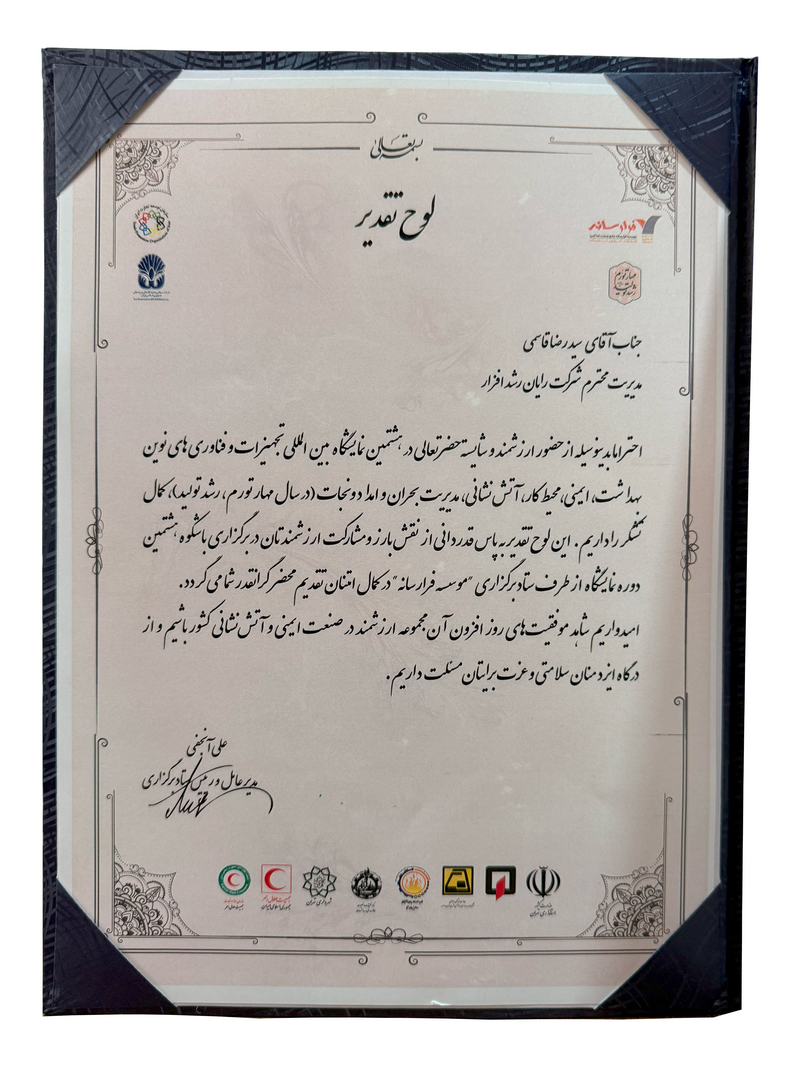 بسمه تعالی
لوح تقدیر
فرارسانه
مهار تورم
رشد تولید
جناب آقای سید رضا قاسمی
مدیریت محترم شرکت رایان رشد افزار
احتراما بدینوسیله از حضور ارزشمند و شایسته حضرتعالی در هشتمین نمایشگاه بین المللی تجهیزات و فناوری های نوین
بهداشت، ایمنی، محیط کار، آتش نشانی، مدیریت بحران و امداد و نجات (در سال مهار تورم، رشد تولید)، کمال
تشکر را داریم. این لوح تقدیر به پاس قدردانی از نقش بارز و مشارکت ارزشمندتان در برگزاری باشکوه هشتمین
دوره نمایشگاه از طرف ستاد برگزاری "موسسه فرارسانه" در کمال امتنان تقدیم محضر گرانقدر شما می گردد.
امیدواریم شاهد موفقیت های روز افزون آن مجموعه ارزشمند در صنعت ایمنی و آتش نشانی کشور باشیم و از
درگاه ایزد منان سلامتی و عزت برایتان مسئلت داریم.
علی آنجفی
مدیر عامل و رییس ستاد برگزاری
استانداری تهران
شهرداری تهران
جمعیت هلال احمر
جمهوری اسلامی ایران